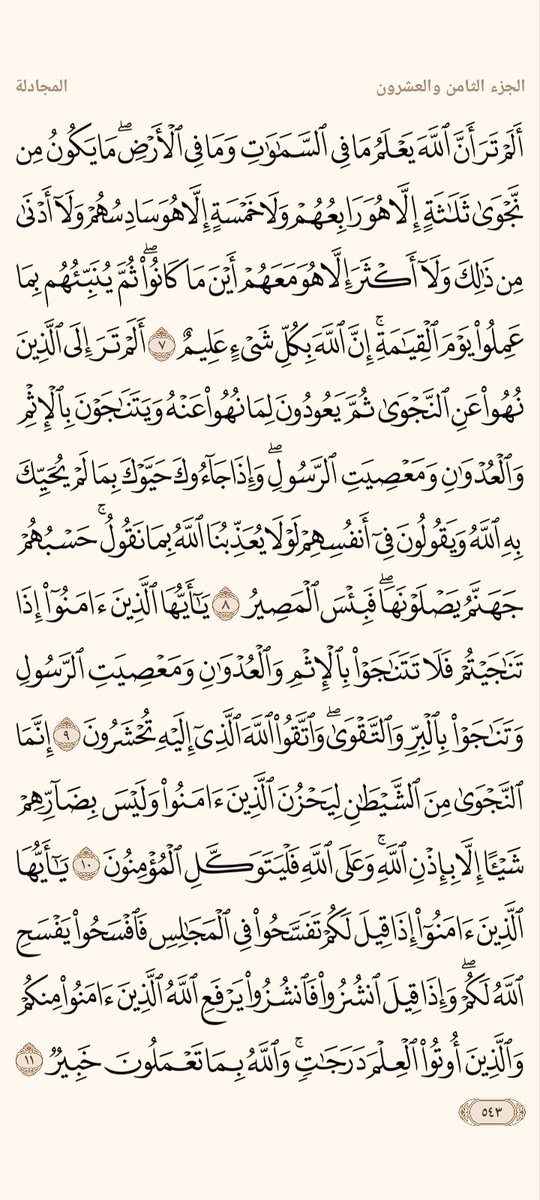 الجزء الثامن والعشرون
المجادلة
أَلَمْ تَرَ أَنَّ ٱللَّهَ يَعْلَمُ مَا فِى ٱلسَّمَٰوَٰتِ وَمَا فِى ٱلْأَرْضِ ۖ مَا يَكُونُ مِن
نَّجْوَىٰ ثَلَٰثَةٍ إِلَّا هُوَ رَابِعُهُمْ وَلَا خَمْسَةٍ إِلَّا هُوَ سَادِسُهُمْ وَلَآ أَدْنَىٰ
مِن ذَٰلِكَ وَلَآ أَكْثَرَ إِلَّا هُوَ مَعَهُمْ أَيْنَ مَا كَانُوا۟ ۖ ثُمَّ يُنَبِّئُهُم بِمَا
عَمِلُوا۟ يَوْمَ ٱلْقِيَٰمَةِ ۚ إِنَّ ٱللَّهَ بِكُلِّ شَىْءٍ عَلِيمٌ ٧ أَلَمْ تَرَ إِلَى ٱلَّذِينَ
نُهُوا۟ عَنِ ٱلنَّجْوَىٰ ثُمَّ يَعُودُونَ لِمَا نُهُوا۟ عَنْهُ وَيَتَنَٰجَوْنَ بِٱلْإِثْمِ
وَٱلْعُدْوَٰنِ وَمَعْصِيَتِ ٱلرَّسُولِ ۖ وَإِذَا جَآءُوكَ حَيَّوْكَ بِمَا لَمْ يُحَيِّكَ
بِهِ ٱللَّهُ وَيَقُولُونَ فِىٓ أَنفُسِهِمْ لَوْلَا يُعَذِّبُنَا ٱللَّهُ بِمَا نَقُولُ ۚ حَسْبُهُمْ
جَهَنَّمُ يَصْلَوْنَهَا ۖ فَبِئْسَ ٱلْمَصِيرُ ٨ يَٰٓأَيُّهَا ٱلَّذِينَ ءَامَنُوٓا۟ إِذَا
تَنَٰجَيْتُمْ فَلَا تَتَنَٰجَوْا۟ بِٱلْإِثْمِ وَٱلْعُدْوَٰنِ وَمَعْصِيَتِ ٱلرَّسُولِ
وَتَنَٰجَوْا۟ بِٱلْبِرِّ وَٱلتَّقْوَىٰ ۖ وَٱتَّقُوا۟ ٱللَّهَ ٱلَّذِىٓ إِلَيْهِ تُحْشَرُونَ ٩ إِنَّمَا
ٱلنَّجْوَىٰ مِنَ ٱلشَّيْطَٰنِ لِيَحْزُنَ ٱلَّذِينَ ءَامَنُوا۟ وَلَيْسَ بِضَآرِّهِمْ
شَيْـًٔا إِلَّا بِإِذْنِ ٱللَّهِ ۚ وَعَلَى ٱللَّهِ فَلْيَتَوَكَّلِ ٱلْمُؤْمِنُونَ ١٠ يَٰٓأَيُّهَا
ٱلَّذِينَ ءَامَنُوٓا۟ إِذَا قِيلَ لَكُمْ تَفَسَّحُوا۟ فِى ٱلْمَجَٰلِسِ فَٱفْسَحُوا۟ يَفْسَحِ
ٱللَّهُ لَكُمْ ۖ وَإِذَا قِيلَ ٱنشُزُوا۟ فَٱنشُزُوا۟ يَرْفَعِ ٱللَّهُ ٱلَّذِينَ ءَامَنُوا۟ مِنكُمْ
وَٱلَّذِينَ أُوتُوا۟ ٱلْعِلْمَ دَرَجَٰتٍ ۚ وَٱللَّهُ بِمَا تَعْمَلُونَ خَبِيرٌ ١١
٥٤٣